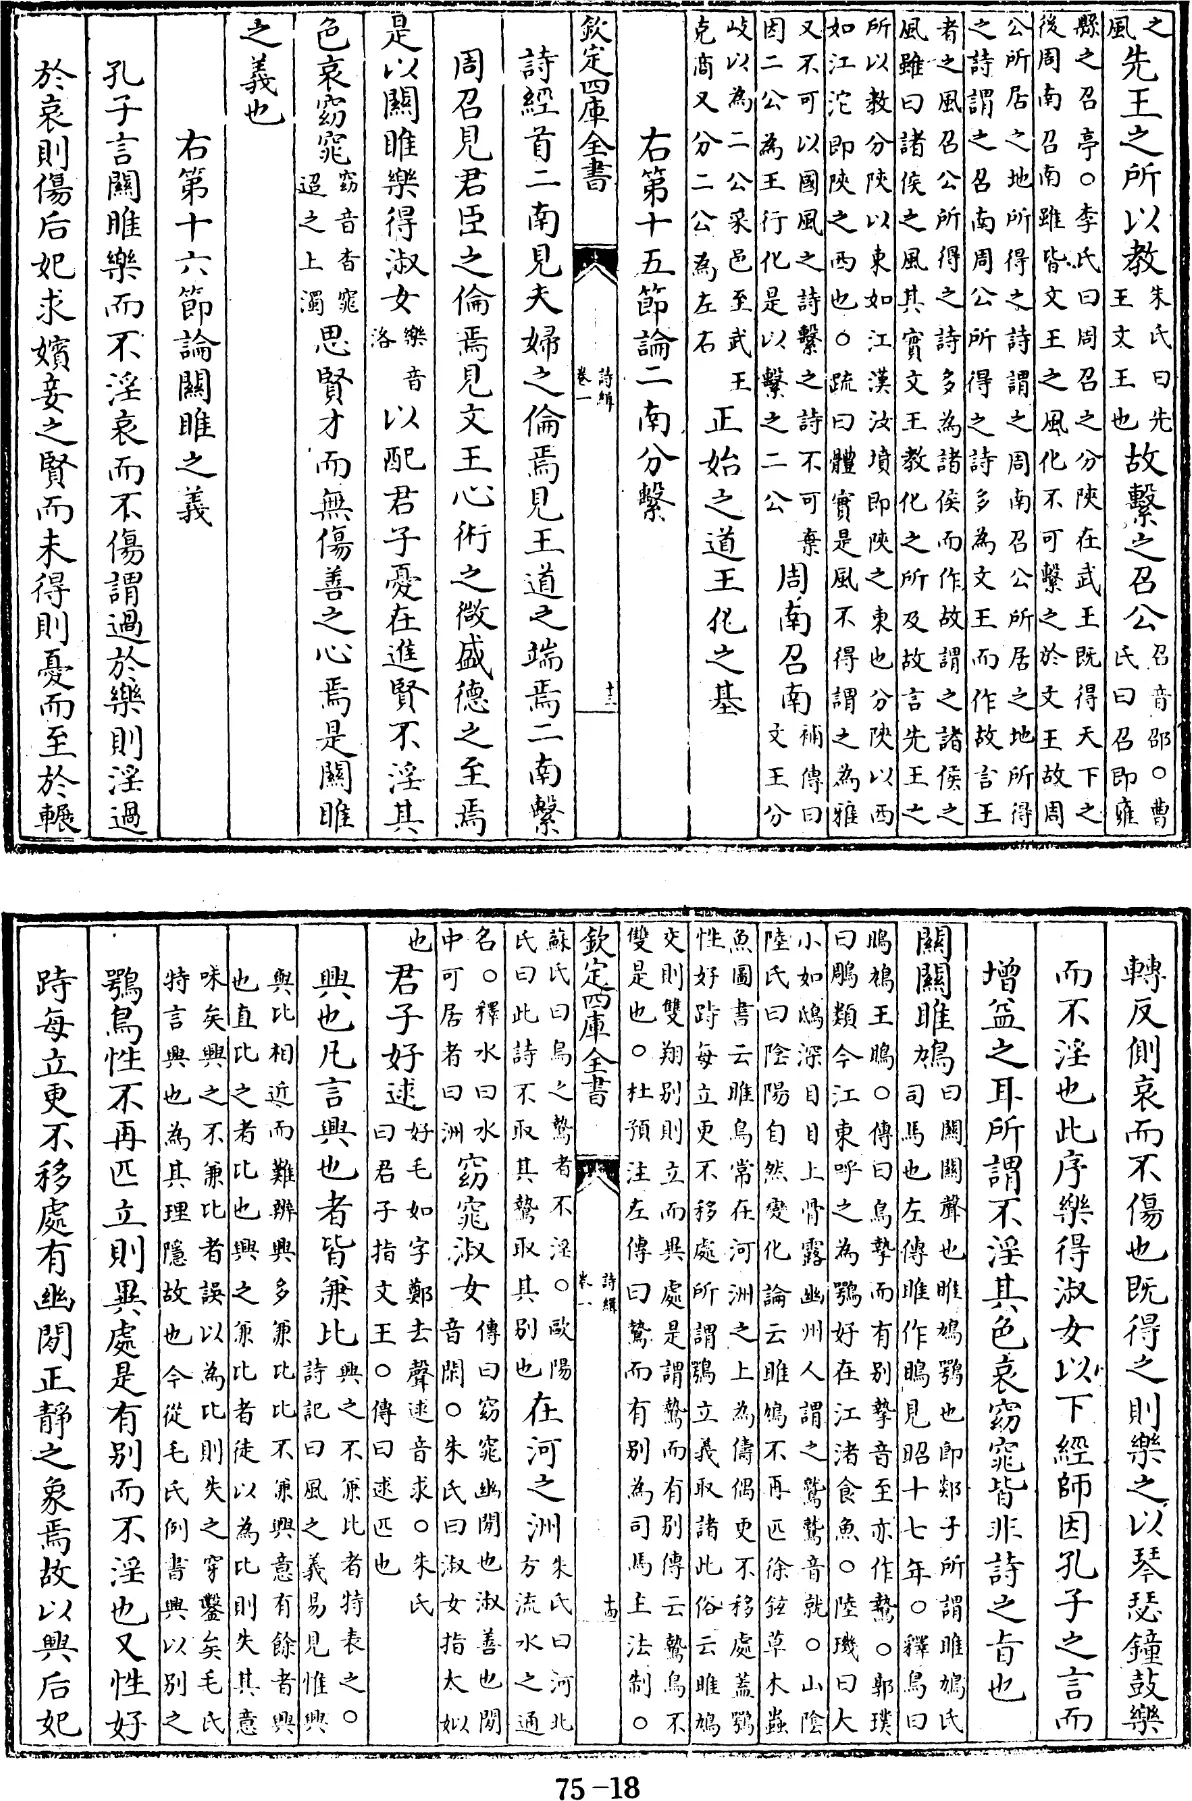 之風先王之所以教朱氏曰先王文王也故繫之召公召音邵○曹氏曰召即雍
縣之召亭○李氏曰周召之分陜在武王既得天下之
後周南召南雖皆文王之風化不可繫之於文王故周
公所居之地所得之詩謂之周南召公所居之地所得
之詩謂之召南周公所得之詩多為文王而作故言王
者之風召公所得之詩多為諸侯而作故謂之諸侯之
風雖曰諸侯之風其實文王教化之所及故言先王之
所以教分陜以東如江漢汝墳即陜之東也分陜以西
如江沱即陜之西也○疏曰體實是風不得謂之為雅
又不可以國風之詩繫之詩不可棄因二公為王行化是以繫之二公周南召南補傳曰文王分
岐以為二公采邑至武王克商又分二公為左右正始之道王化之基
右第十五節論二南分繫
欽定四庫全書 詩緝卷一 十三
詩經首二南見夫婦之倫焉見王道之端焉二南繫
周召見君臣之倫焉見文王心術之微盛德之至焉
是以關雎樂得淑女樂音洛以配君子憂在進賢不淫其
色哀窈窕窈音杳窕迢之上濁思賢才而無傷善之心焉是關雎
之義也
右第十六節論關雎之義
孔子言關雎樂而不淫哀而不傷謂過於樂則淫過
於哀則傷后妃求嬪妾之賢而未得則憂而至於輾
轉反側哀而不傷也既得之則樂之以琴瑟鐘鼓樂
而不淫也此序樂得淑女以下經師因孔子之言而
增益之耳所謂不淫其色哀窈窕皆非詩之旨也
關關雎鳩曰關關聲也雎鳩鶚也即郯子所謂雎鳩氏司馬也左傳雎作鴡見昭十七年○釋鳥曰
鴡鳩王鴡○傳曰鳥摯而有别摯音至亦作鷙○郭璞
曰鵰類今江東呼之為鶚好在江渚食魚○陸璣曰大
小如鴟深目目上骨露幽州人謂之鷲鷲音就○山陰
陸氏曰陰陽自然變化論云雎鳩不再匹徐鉉草木蟲
魚圖書云雎鳥常在河洲之上為儔偶更不移處蓋鶚
性好跱每立更不移處所謂鶚立義取諸此俗云雎鳩
交則雙翔别則立而異處是謂鷙而有别傳云鷙鳥不
雙是也○杜預注左傳曰鷙而有别為司馬主法制○
欽定四庫全書 詩緝卷一 十四
蘇氏曰鳥之鷙者不淫○歐陽氏曰此詩不取其鷙取其别也在河之洲朱氏曰河北方流水之通
名○釋水曰水中可居者曰洲窈窕淑女傳曰窈窕幽閒也淑善也閒音閑○朱氏曰淑女指太姒
也君子好逑好毛如字鄭去聲逑音求○朱氏曰君子指文王○傳曰逑匹也
興也凡言興也者皆兼比興之不兼比者特表之○詩記曰風之義易見惟興
與比相近而難辨興多兼比比不兼興意有餘者興
也直比之者比也興之兼比者徒以為比則失其意
味矣興之不兼比者誤以為比則失之穿鑿矣毛氏
特言興也為其理隱故也今從毛氏例書興以别之
鶚鳥性不再匹立則異處是有别而不淫也又性好
跱每立更不移處有幽閒正靜之象焉故以興后妃
75-18